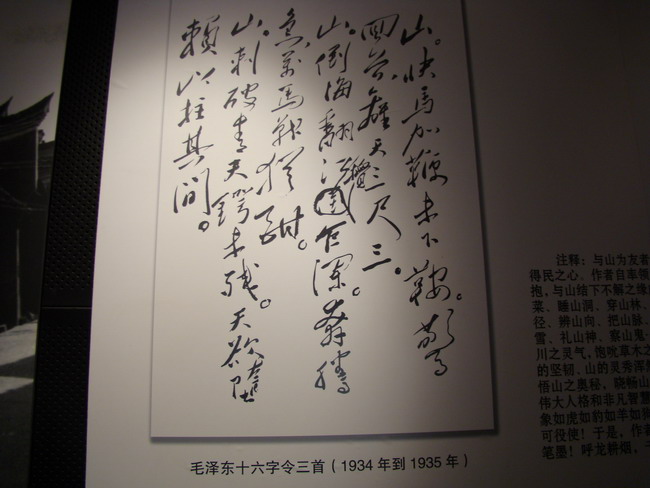 山。快馬加鞭未下鞍。驚
回首離天三尺三。
山。倒海翻江捲巨瀾。奔騰
急萬馬戰猶酣。
山。刺破青天鍔未殘。天欲墮
賴以拄其間。
毛泽东十六字令三首（1934 年到 1935 年）
注释：与山为友者
得民之心、作者自率领
抱，与山结下不解之缘
菜、睡山洞、穿山林、
径、辨山向、把山脉、
雪、礼山神、察山鬼
川之灵气，饱吮草木之
的坚韧、山的灵秀浑
悟山之奥秘，晓畅山
伟大人格和非凡智慧
象如虎如豹如羊如
可役使！于是，作
笔墨！呼龙耕烟，